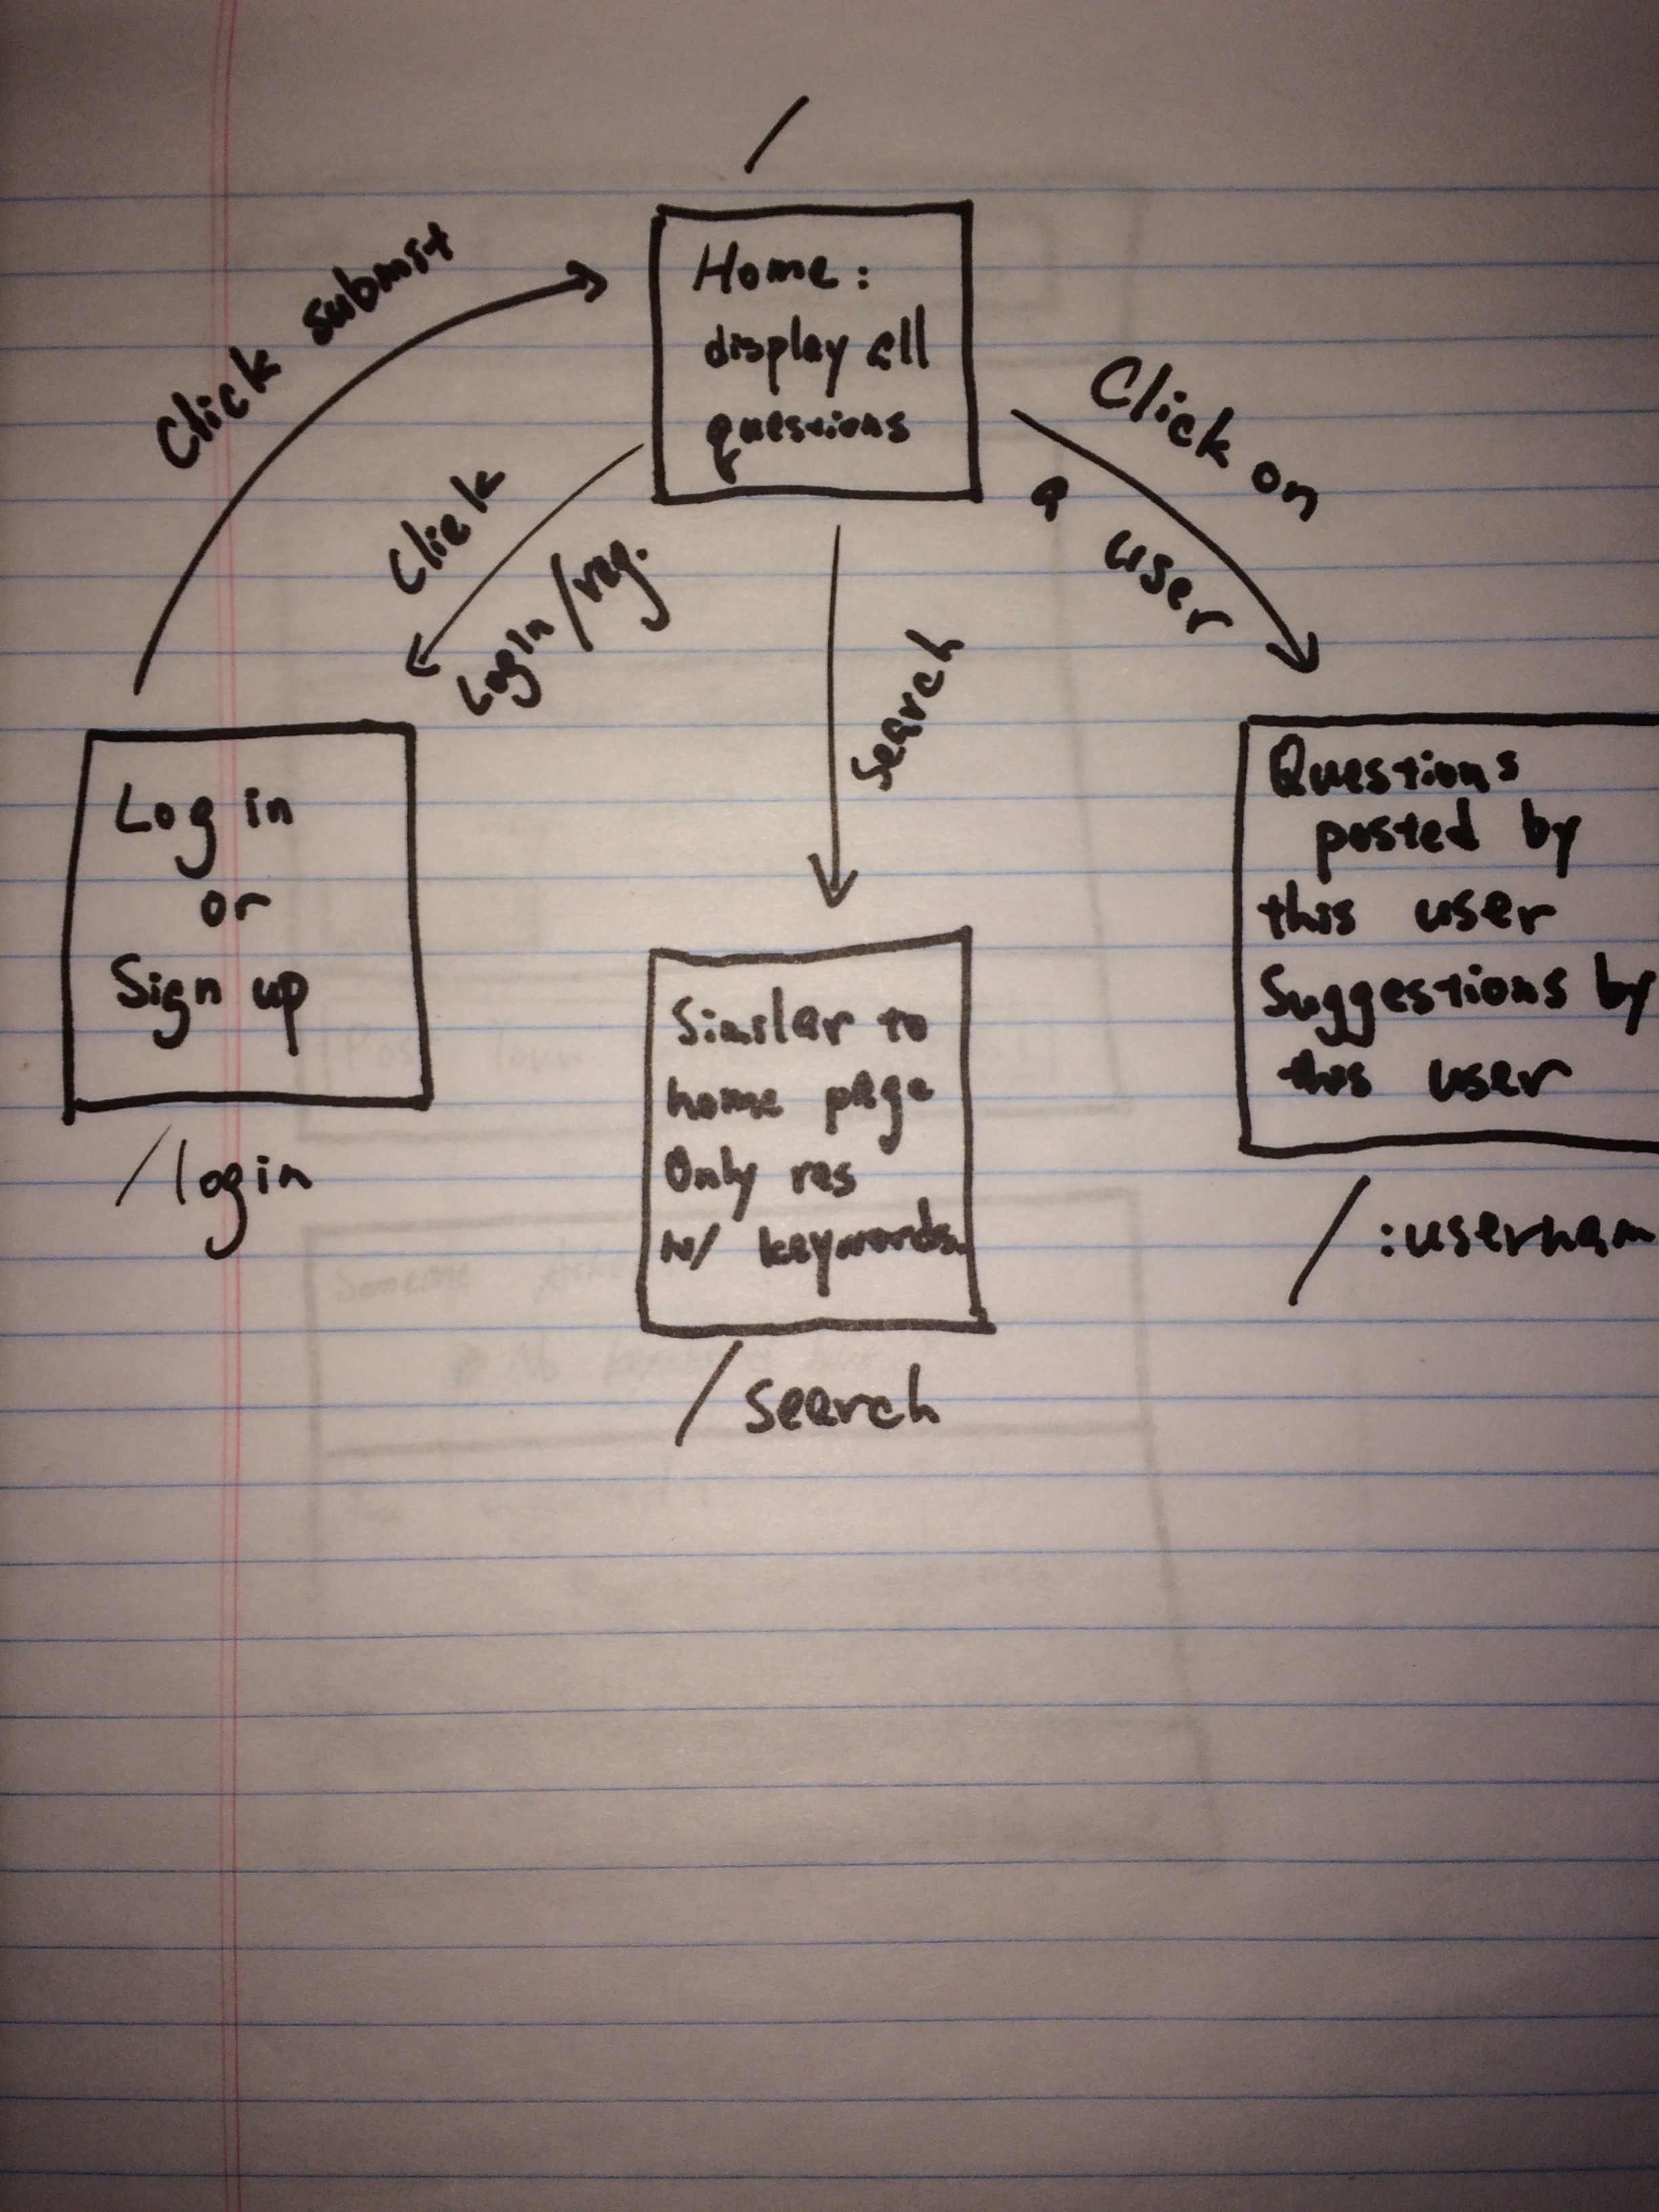 /
Home:
display all
questions
Click submit
Click
Login/reg.
Search
Click on
a user
Log in
or
Sign up
/login
Similar to
home page
Only res
w/ keywords.
/search
Questions
posted by
this user
Suggestions by
this user
/:usernam
Post Your
Someone